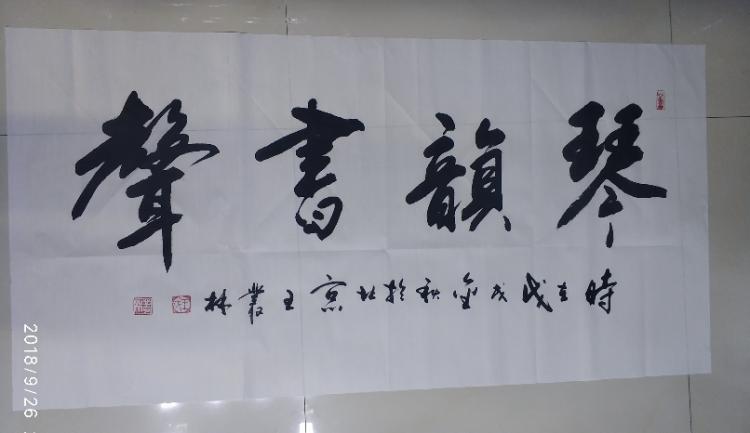 琴韻書聲
時在戊戌金秋於北京王叢林
2018/9/26